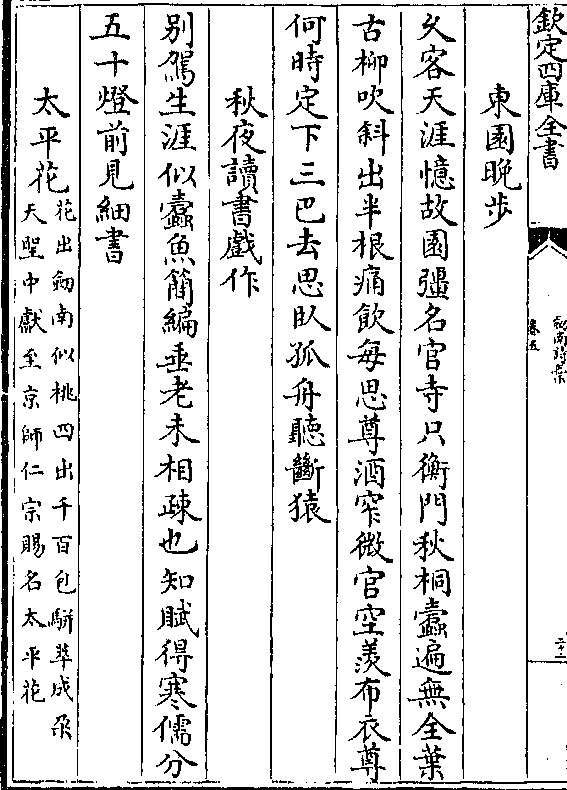 欽定四庫全書
劒南詩藁
卷五
二十二
東園晚步
久客天涯憶故園彊名官寺只衡門秋桐蠹遍無全葉
古柳吹斜出半根痛飲每思尊酒窄微官空羡布衣尊
何時定下三巴去思卧孤舟聽斷猿
秋夜讀書戲作
别駕生涯似蠹魚簡編垂老未相疎也知賦得寒儒分
五十燈前見細書
太平花
花出劒南似桃四出千百包駢萃成朶
天聖中獻至京師仁宗賜名太平花